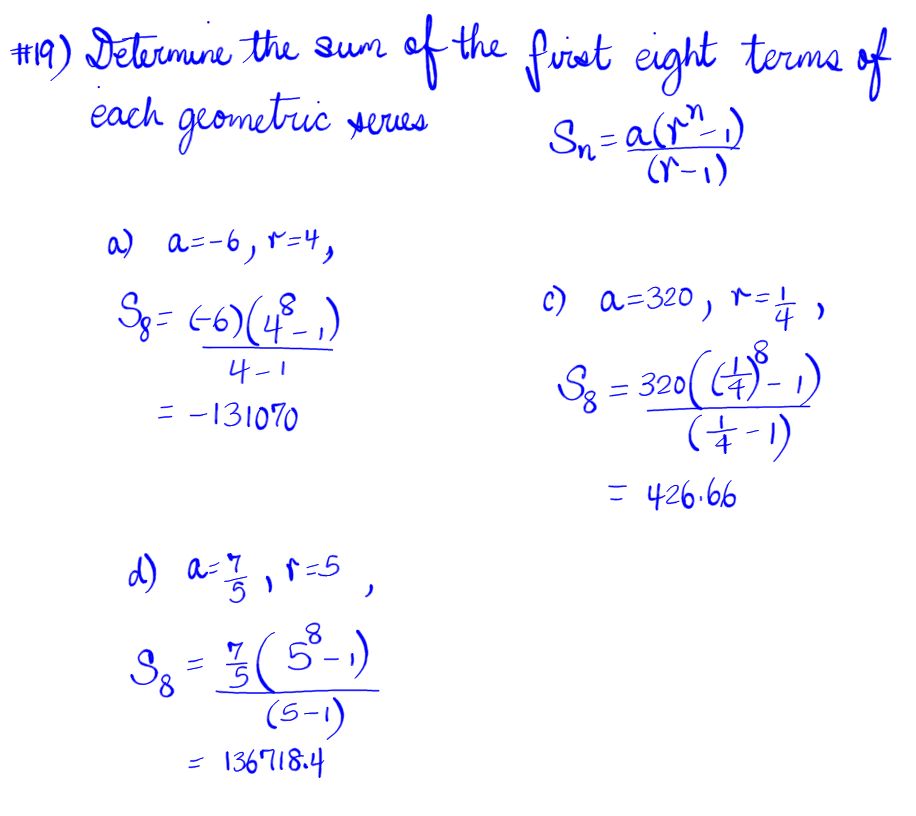 #19) Determine the sum of the first eight terms of
each geometric series
Sn = a(rⁿ-1)/(r-1)
a) a=-6, r=4,
S₈ = (-6)(4⁸-1)/4-1
= -131070
c) a=320, r=1/4,
S₈ = 320((1/4)⁸-1)/(1/4-1)
= 426.66
d) a=7/5, r=5,
S₈ = 7/5(5⁸-1)/(5-1)
= 136718.4